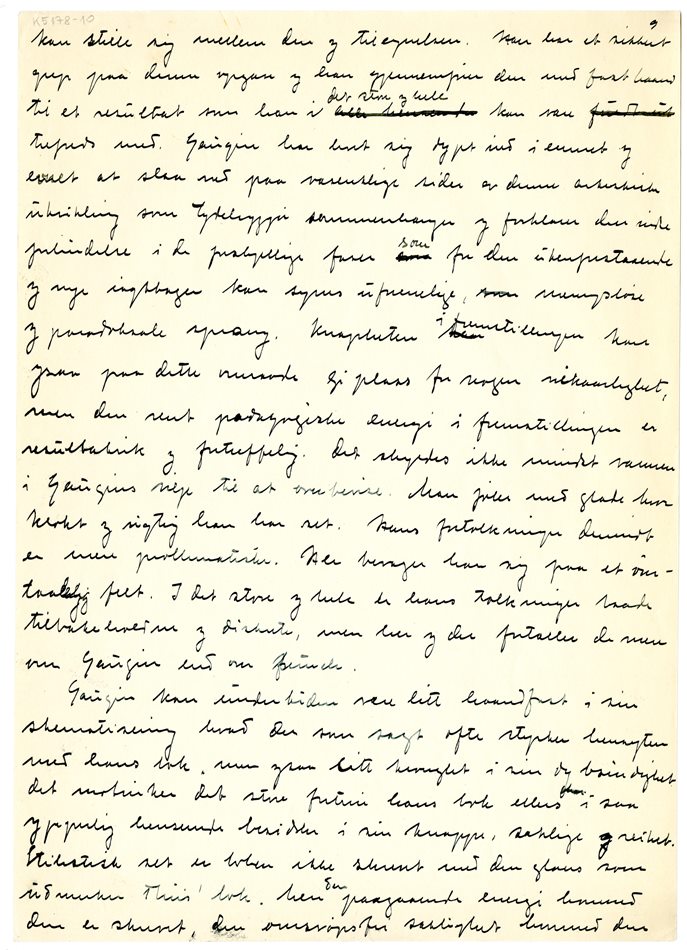 K5178-10
9
kan stille sig mellem den og tilegnelsen. Han har et sikkert
grep paa denne opgave og han gjennemfører den med fast haand
til et resultat som han i det store og hele kan være
tilfreds med. Gauguin har levet sig dypt ind i emnet og
evnet at slaa ned paa væsentlige sider av denne
utvikling som tydeliggjør sammenhænger og forklarer den indre
forbindelse i de forskjellige faser som for den utenforstaaende
og nye iagttager kan synes uforenelige, meningsløse
og paradoksale sprang. Knapheten i fremstillingen kan
ogsaa paa dette omraade gi plass for nogen vilkaarlighet,
men den rent pædagogiske energi i fremstillingen er
resultatrik og fortreffelig. Det skyldes ikke mindst varmen
i Gauguins evje til at overbevise. Man føler med glæde hvor
sterkt og rigtig han har set. Hans fortolkninger derimot
er mere problematiske. Her bevæger han sig paa et om-
felt. I det store og hele er hans tolkninger baade
tilbakeholdne og diskrete, men her og der fortæller de mere
om Gauguin end om Munch.
Gauguin kan undertiden være litt haandfast i sin
skematisering hvad der som sagt ofte styrker hensigten
med hans bok, men ogsaa litt tvunget i sin dybsindighet
det motvirker det store fortrin hans bok ellers i saa
ypperlig henseende besidder i sin knappe, saklige greihet.
Stilistisk set er boken ikke skrevet med den glans som
utmerker Thiis' bok. Men den paagaaende energi hvormed
den er skrevet, den omsvøpsfri saklighet hvormed den